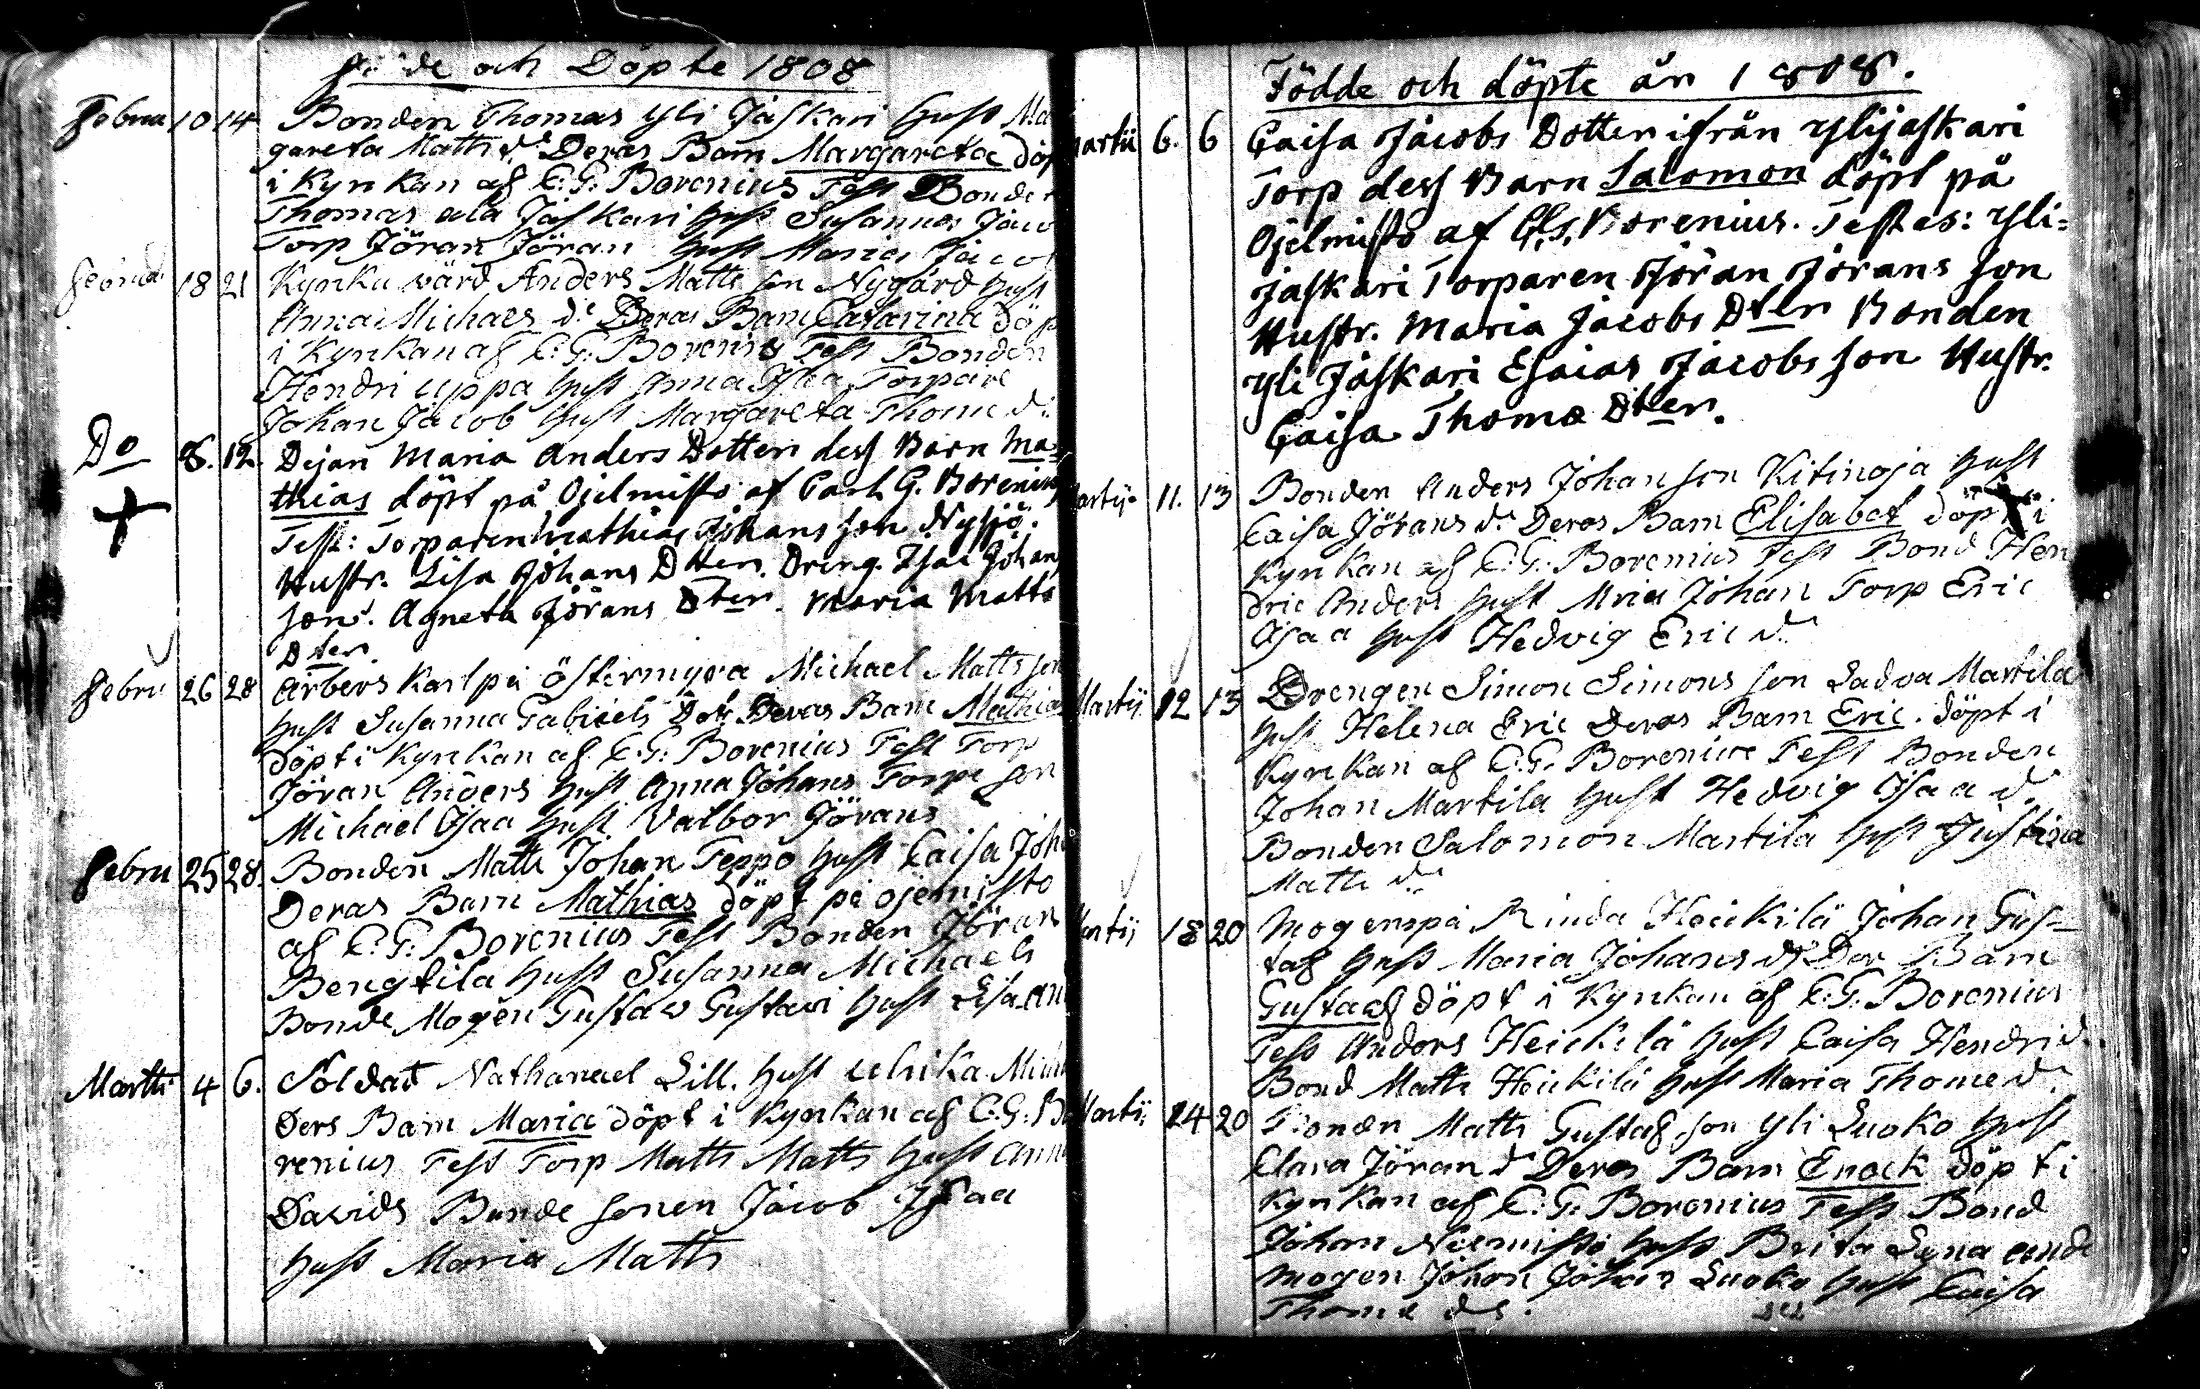 Födde och Döpte 1808
Februa 10 14 Bonden Thomas Yli Jaskari Hust Mar
gareta Matts d:r Deras Barn Margareta döp
i Kyrkan af C. G. Borenius Test Bonde
Thomas ala Jaskari Hust Susanna Jaco
Torp Jöran Jöran Hust Maria Jacob
18 21 Kyrku värd Anders Matts son Nygård Hust
Anna Michaes d:r Deras Barn Catarina döp
i Kyrkan af C. G. Borenius Test Bonden
Hendri uppa Hust Anna Torpare
Johan Jacob Hust Margareta Thome d:r
Do 8. 12. Pijan Maria Anders Dotter dess Barn Ma=
thias döpt på Ojelmisto af Carl G. Borenius
Test: Torparen Mathias Johans son Nysjö.
Hustr. Lisa Johans Dter. Dreng. Isac Johans
son. Agneta Jörans Dter. Maria Matts
Dter.
Febru 26 28 Arbers Karl på östermyra Michael Matts son
Hust Susanna Gabriels Dotr Deras Barn Mathias
döpt i Kyrkan af C. G. Borenius Test Torp
Jöran Anders Hust Anna Johans Torpa son
Michael Isaa Hust Valbor Jörans
Febru 25 28. Bonden Matts Johan Teppo Hust Caisa Joha
Deras Barn Mathias döpt på ojemisto
af C. G. Borenius Test Bonden Jöran
Bengtila Hust Susanna Michaels
Bonde Mogen Gustaw Gustavi Hust Lisa An
Martti 4 6. Soldat Nathanael Lill. Hust Ulrika Mich
Ders Barn Maria döpt i Kyrkan af C. G. Bo
renius Test Torp Matts Matts Hust Anna
Davids Bonde sonen Jacob Isaa
Hust Maria Matts
Födde och döpte år 1808.
Martii 6. 6 Caisa Jacobs Dotter ifrån Ylijaskari
Torp dess Barn Salomon döpt på
Ojelmisto af C. G. Borenius. Testes: Yli=
jaskari Torparen Jöran Jörans son
Hustr. Maria Jacobs Dter Bonden
Yli Jaskari Esaias Jacobs son Hustr.
Caisa Thomæ Dter.
Martii 11. 13 Bonden Anders Johan son Kitinoja Hust
Caisa Jörans d:r Deras Barn Elisabet döpt i
Kyrkan af C. G. Borenius Test Bond Hen
dric Anders Hust Mria Johan Torp Eric
Isaa Hust Hedvig Eric d:r
Martii 12 13 Drengen Simon Simons son Ladva Martila
Hust Helena Eric Deras Barn Eric. döpt i
Kyrkan af C. G. Borenius Test Bonden
Johan Martila Hust Hedvig Isaa d:r
Bonden Salomon Martila Hust Justina
Matts d:r
Martii 18 20 Mogens på Rinda Heickilä Johan Gus=
taf Hust Maria Johans dr Der Barn
Gustaaf döpt i Kyrkan af C. G. Borenius
Tess Anders Heickilä Hust Caisa Hendri d.
Bond Matts Heickilä Hust Maria Thome d:r
Martii 14 20 Bonden Matts Gustaf son Yli Luoko Hust
Clara Jöran dr Deras Barn Enock döpt i
Kyrkan af C. G. Borenius Test Bond
Johan Niemistö Hust Brita Lena ande
mogen Johan Johan Luoko Hust Caisa
Thome ds.